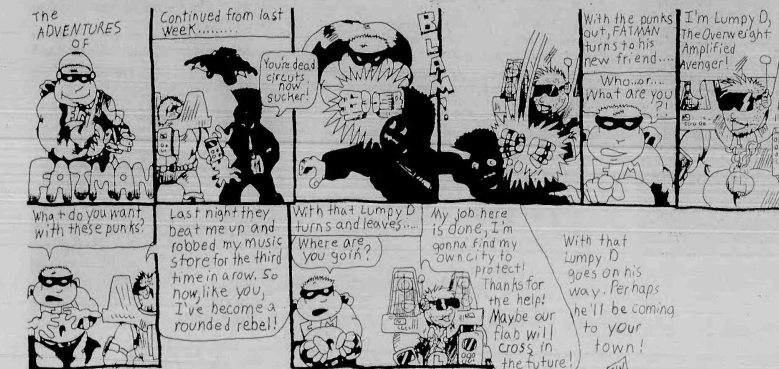 The
ADVENTURES
OF
FATMAN
Continued from last
week.........
You're dead
circuts
now
sucker!
BLAM!
With the punks
out, FATMAN
turns to his
new friend....
Who...or....
What are you
?!
I'm Lumpy D,
The Overweight
Amplified
Avenger!
What do you want
with these punks?
Last night they
beat me up and
robbed my music
store for the third
time in a row. So
now, like you,
I've become a
rounded rebel!
With that Lumpy D
turns and leaves....
Where are
you goin?
My job here
is done, I'm
gonna find my
own city to
protect!
Thanks for
the help!
Maybe our
flab will
cross in
the future!
With that
Lumpy D
goes on his
way. Perhaps
he'll be coming
to your
town!